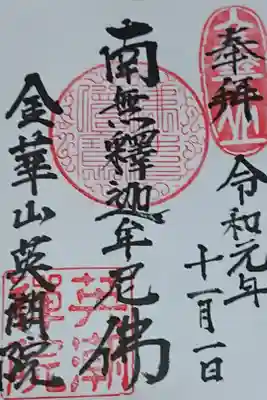 奉拜
令和元年
十一月一日
南無釋迦牟尼佛
金華山英潮院
英潮
禅院